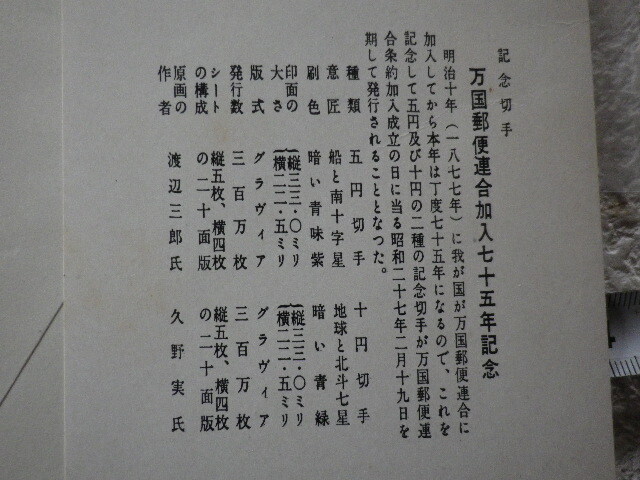 記念切手
万国郵便連合加入七十五年記念
明治十年（一八七七年）に我が国が万国郵便連合に
加入してから本年は丁度七十五年になるので、これを
記念して五円及び十円の二種の記念切手が万国郵便連
合条約加入成立の日に当る昭和二十七年二月十九日を
期して発行されることとなつた。
種類 五円切手 十円切手
意匠 船と南十字星 地球と北斗七星
刷色 暗い青味紫 暗い青緑
印面の大さ {縦三三・〇ミリ 横二二・五ミリ {縦三三・〇ミリ 横二二・五ミリ
版式 グラヴィア グラヴィア
発行数 三百万枚 三百万枚
シートの構成 縦五枚、横四枚の二十面版 縦五枚、横四枚の二十面版
原画の作者 渡辺三郎氏 久野実氏